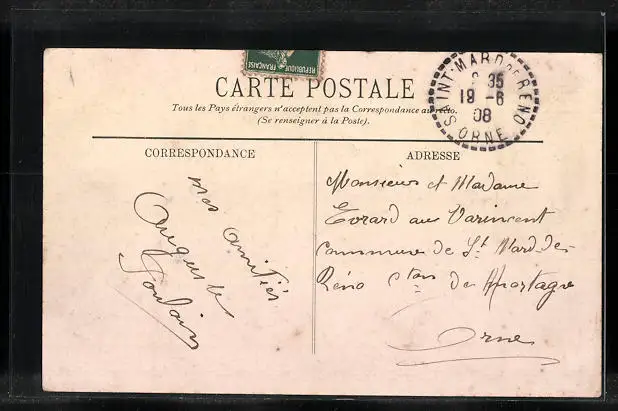 REPUBLIQUE FRANÇAISE
CARTE POSTALE
Tous les Pays étrangers n'acceptent pas la Correspondance au recto.
(Se renseigner à la Poste).
SAINT-MARD DE RENO
35
19 -6
08
ORNE
CORRESPONDANCE
mes amitiés
Auguste
ADRESSE
Monsieur et Madame
Evrard au Varincent
commune de St Mard-de-
Réno cton de Mortagne
Orne